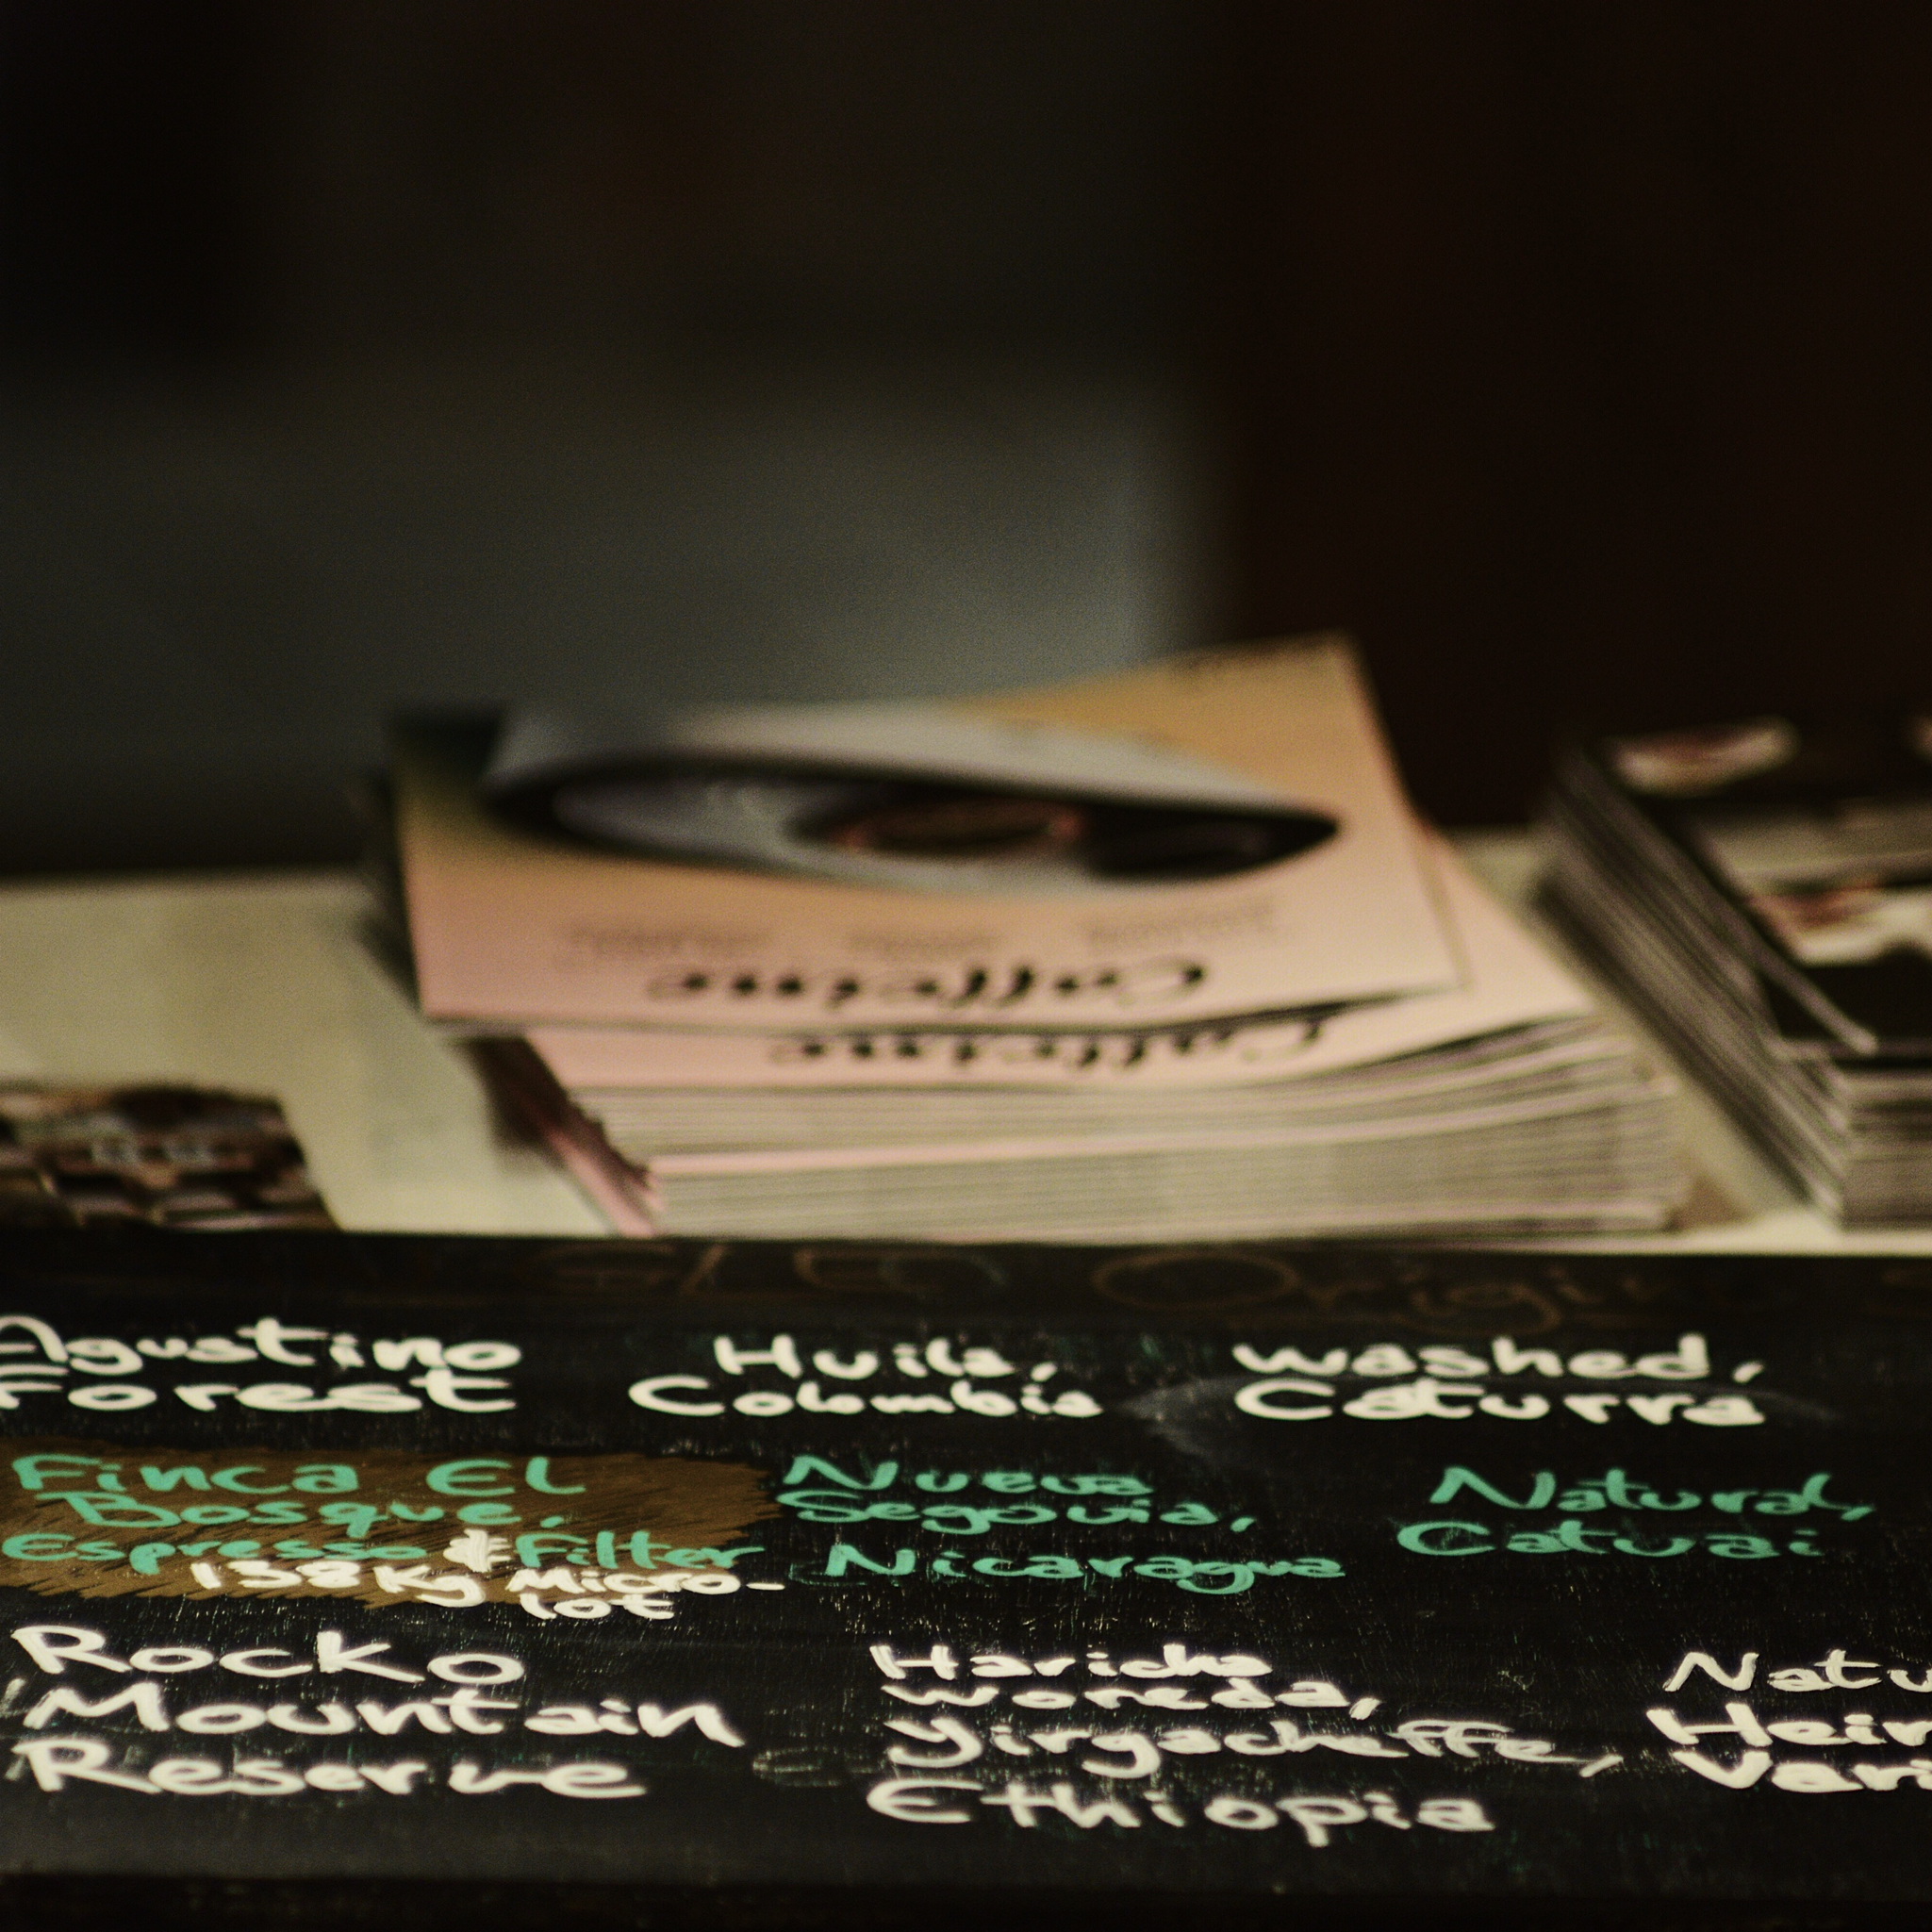 Caffeine
Caffeine
Origin
Agustino
Forest
Huila,
Colombia
washed,
Caturra
Finca El
Bosque,
Espresso & Filter
138Kg Micro-
lot
Nueva
Segovia,
Nicaragua
Natural,
Catuai
Rocko
Mountain
Reserve
Haricha
woreda,
Yirgacheffe,
Ethiopia
Natu
Heir
Vari